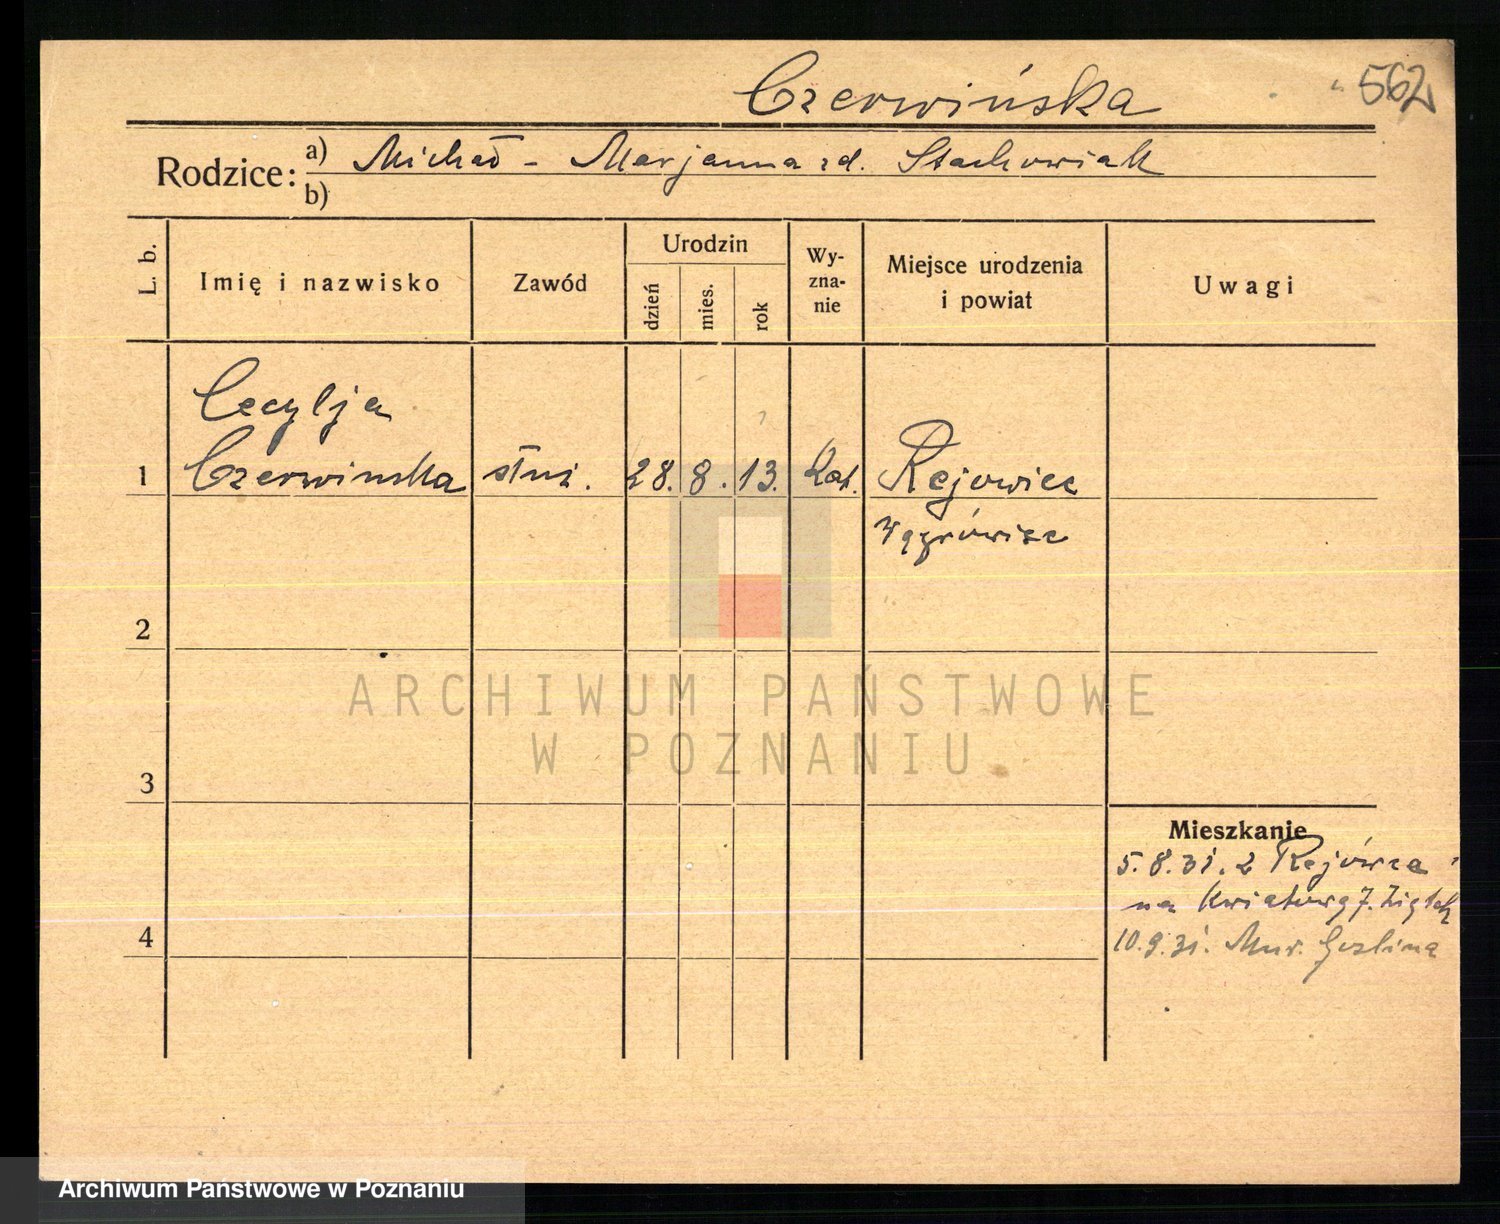 Czerwińska
562
Rodzice: a) Michał - Marjanna zd. Stachowiak
b)
L. b.
Imię i nazwisko
Zawód
Urodzin
dzień
mies.
rok
Wy-
zna-
nie
Miejsce urodzenia
i powiat
Uwagi
Cecylja
1 Czerwinska służ. 28. 8. 13. Kat. Rejowiec
2
3
4
Mieszkanie
5.8.31. z Rejówca
na Kwiatową 7.
10.9.31. Mur. Goślina
ARCHIWUM PAŃSTWOWE
W POZNANIU
Archiwum Państwowe w Poznaniu